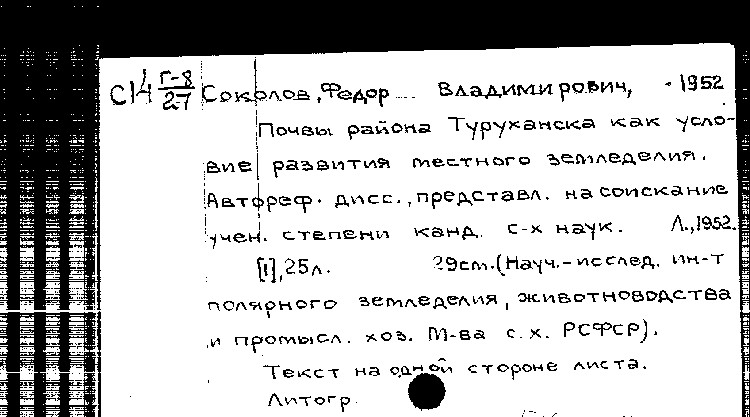 С14 Г-8/27 Соколов, Федор Владимирович, - 1952
Почвы района Туруханска как усло-
вие развития местного земледелия.
Автореф. дисс., представл. на соискание
учен. степени канд. с-х наук. Л., 1952.
[1], 25 л. 29 см. (Науч.-исслед. ин-т
полярного земледелия, животноводства
и промысл. хоз. М-ва с. х. РСФСР).
Текст на одной стороне листа.
Литогр.